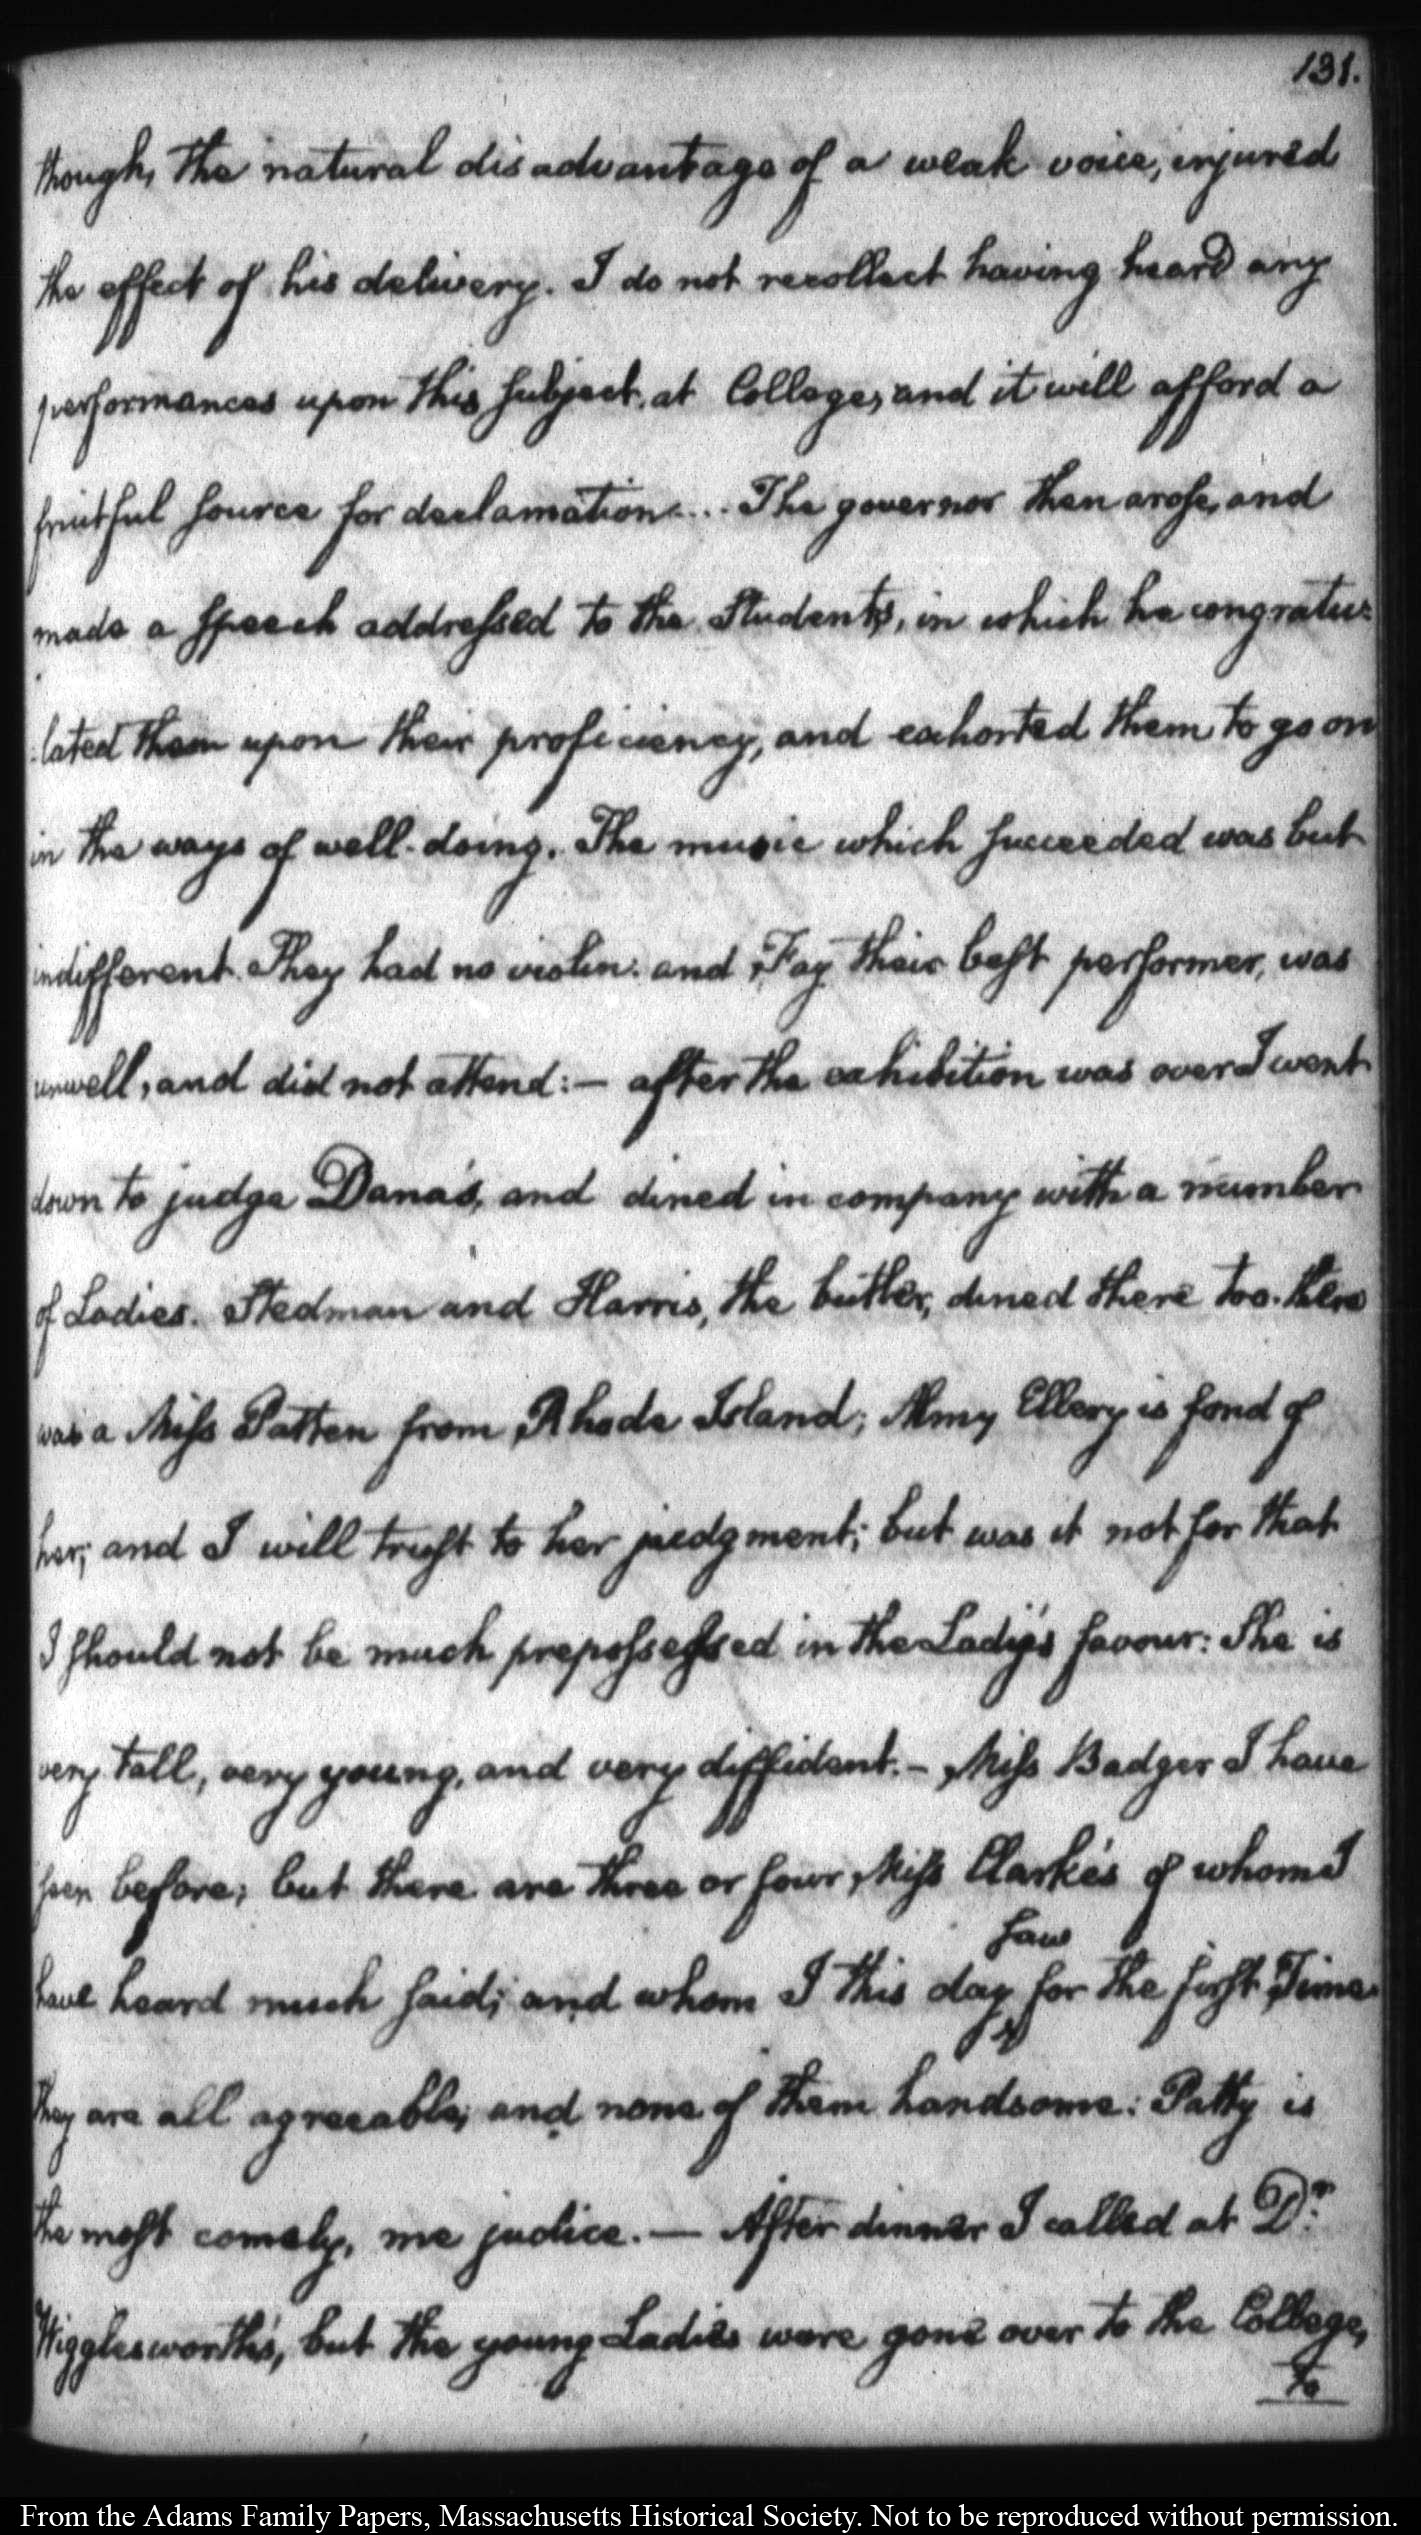 131.
though, the natural disadvantage of a weak voice, injured
the effect of his delivery. I do not recollect having heard any
performances upon this subject, at College, and it will afford a
fruitful source for declamation.... The governor then arose, and
made a speech addressed to the Students, in which he congratu:
:lated them upon their proficiency, and exhorted them to go on
in the ways of well-doing. The music which succeeded was but
indifferent. They had no violin: and Fay their best performer, was
unwell, and did not attend:— after the exhibition was over I went
down to judge Dana's, and dined in company with a number
of Ladies. Stedman and Harris, the butler, dined there too. there
was a Miss Patten from Rhode Island; Almy Ellery is fond of
her; and I will trust to her judgment; but was it not for that
I should not be much prepossessed in the Lady's favour: She is
very tall, very young, and very diffident.— Miss Badger I have
seen before; but there are three or four Miss Clarke's of whom I
saw
have heard much said; and whom I this day ^ for the first Time.
They are all agreeable; and none of them handsome: Patty is
the most comely, me judice.— After dinner I called at Dr:
Wigglesworth's, but the young Ladies were gone over to the College,
to
From the Adams Family Papers, Massachusetts Historical Society. Not to be reproduced without permission.